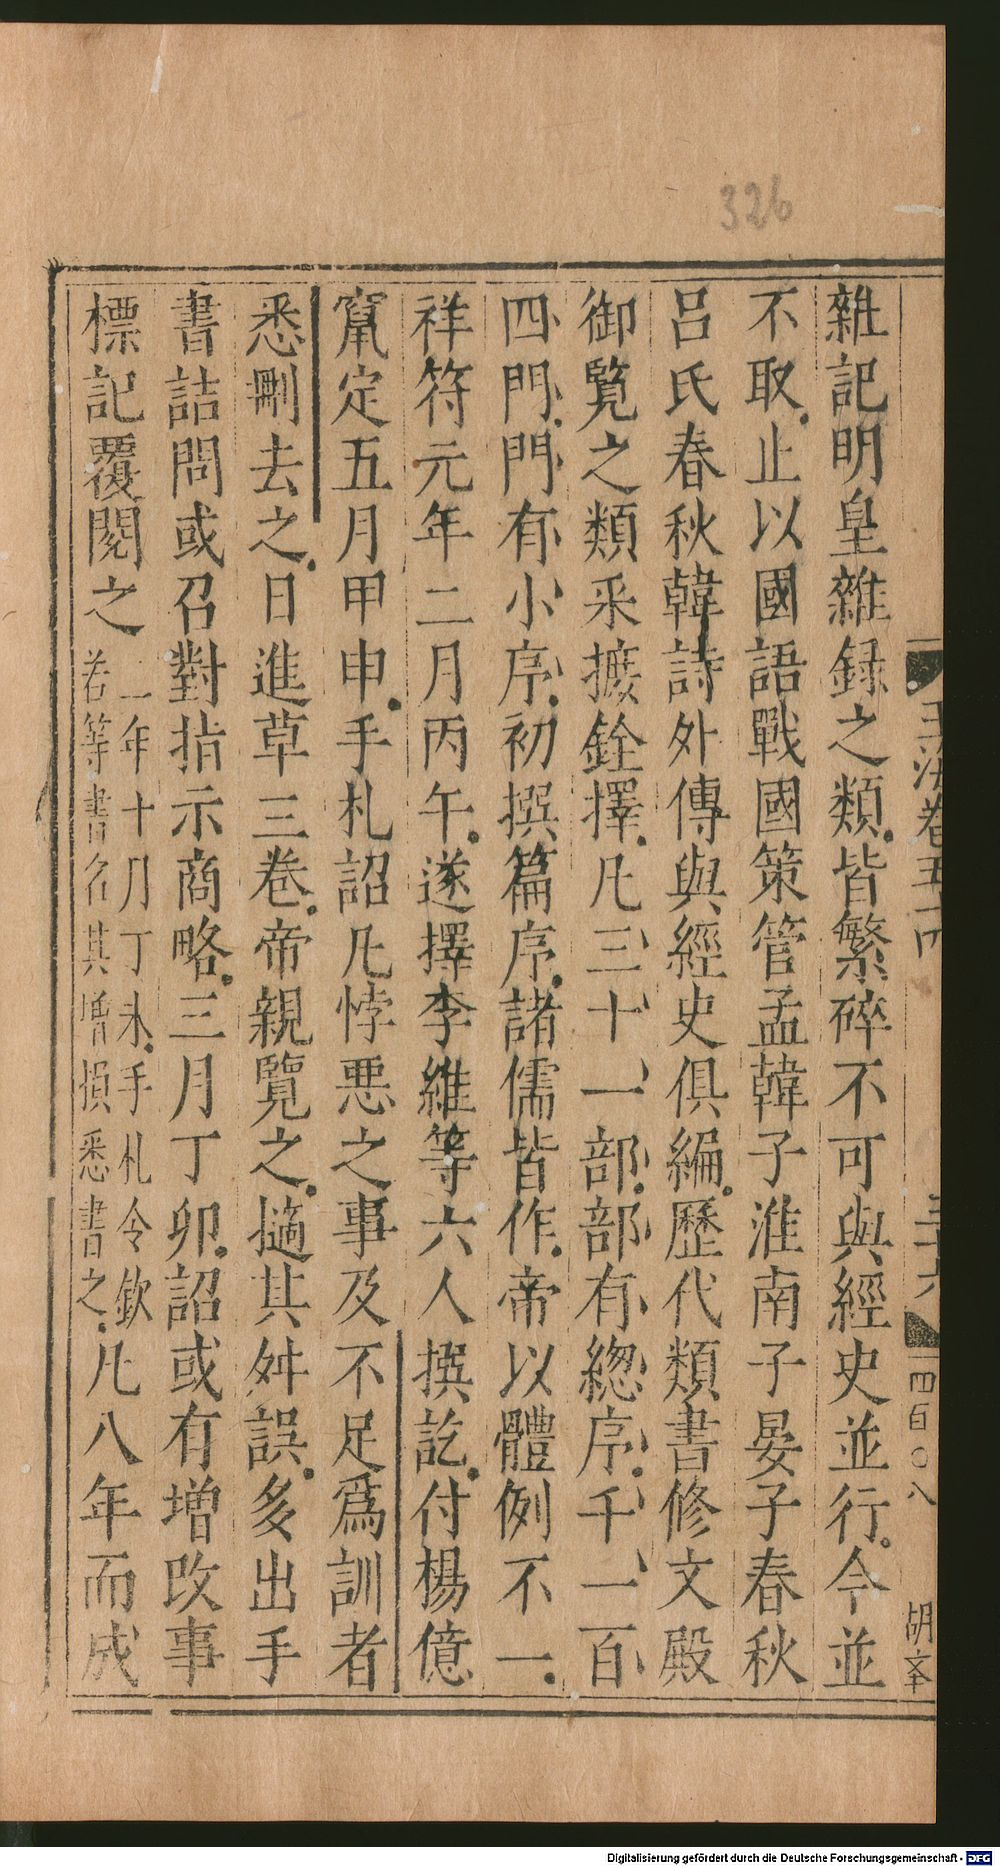 326
玉海卷五十四
三十六
一四百〇八
胡文
雜記明皇雜録之類皆繁碎不可與經史並行今並
不取止以國語戰國策管孟韓子淮南子晏子春秋
呂氏春秋韓詩外傳與經史俱編歷代類書修文殿
御覽之類采摭銓擇凡三十一部部有總序千一百
四門門有小序初撰篇序諸儒皆作帝以體例不一
祥符元年二月丙午遂擇李維等六人撰訖付楊億
竄定五月甲申手札詔凡悖惡之事及不足爲訓者
悉刪去之日進草三卷帝親覽之擿其舛誤多出手
書詰問或召對指示商略三月丁卯詔或有增改事
標記覆閱之
二年十月丁未手札令欽
若等書名其增損悉書之
凡八年而成
Digitalisierung gefördert durch die Deutsche Forschungsgemeinschaft - DFG